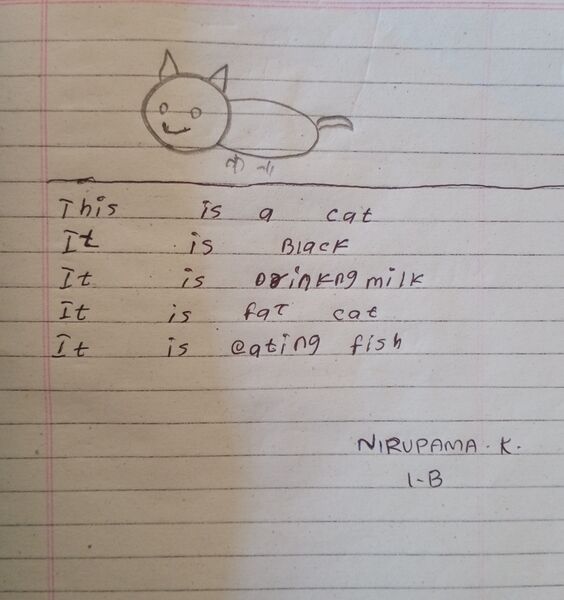 This is a cat
It is Black
It is Drinkng milk
It is fat cat
It is eating fish
NIRUPAMA. K.
1-B